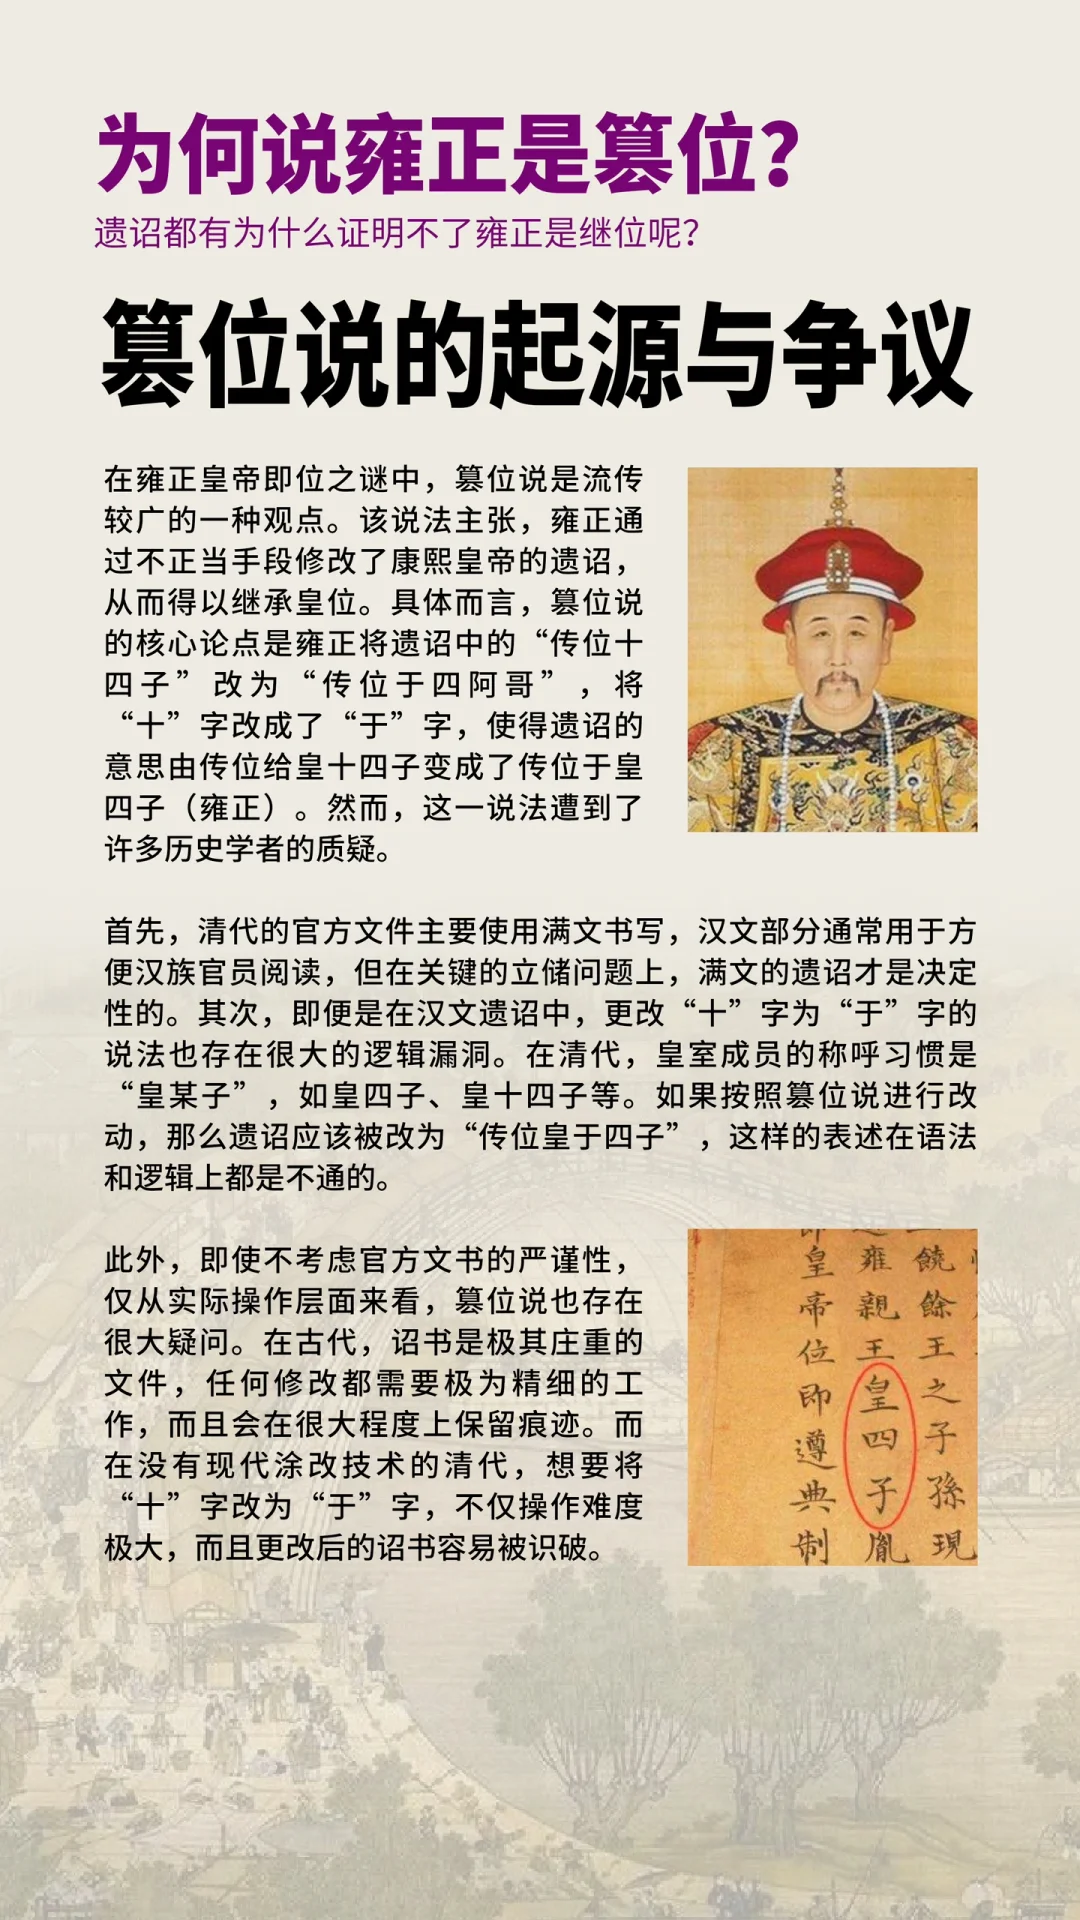 为何说雍正是篡位？
遗诏都有为什么证明不了雍正是继位呢？
篡位说的起源与争议
在雍正皇帝即位之谜中，篡位说是流传
较广的一种观点。该说法主张，雍正通
过不正当手段修改了康熙皇帝的遗诏，
从而得以继承皇位。具体而言，篡位说
的核心论点是雍正将遗诏中的“传位十
四子”改为“传位于四阿哥”，将
“十”字改成了“于”字，使得遗诏的
意思由传位给皇十四子变成了传位于皇
四子（雍正）。然而，这一说法遭到了
许多历史学者的质疑。
首先，清代的官方文件主要使用满文书写，汉文部分通常用于方
便汉族官员阅读，但在关键的立储问题上，满文的遗诏才是决定
性的。其次，即便是在汉文遗诏中，更改“十”字为“于”字的
说法也存在很大的逻辑漏洞。在清代，皇室成员的称呼习惯是
“皇某子”，如皇四子、皇十四子等。如果按照篡位说进行改
动，那么遗诏应该被改为“传位皇于四子”，这样的表述在语法
和逻辑上都是不通的。
此外，即使不考虑官方文书的严谨性，
仅从实际操作层面来看，篡位说也存在
很大疑问。在古代，诏书是极其庄重的
文件，任何修改都需要极为精细的工
作，而且会在很大程度上保留痕迹。而
在没有现代涂改技术的清代，想要将
“十”字改为“于”字，不仅操作难度
极大，而且更改后的诏书容易被识破。
饒餘王之子孫現
雍親王皇四子胤
皇帝位即遵典制